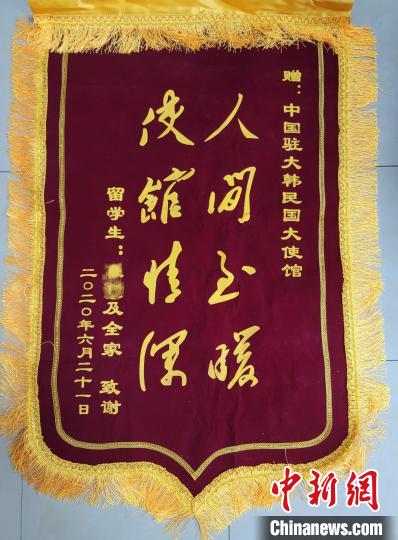 赠：中国驻大韩民国大使馆
人间至暖
使馆情深
留学生：及全家 致谢
二〇二〇年六月二十一日
中新网
Chinanews.com